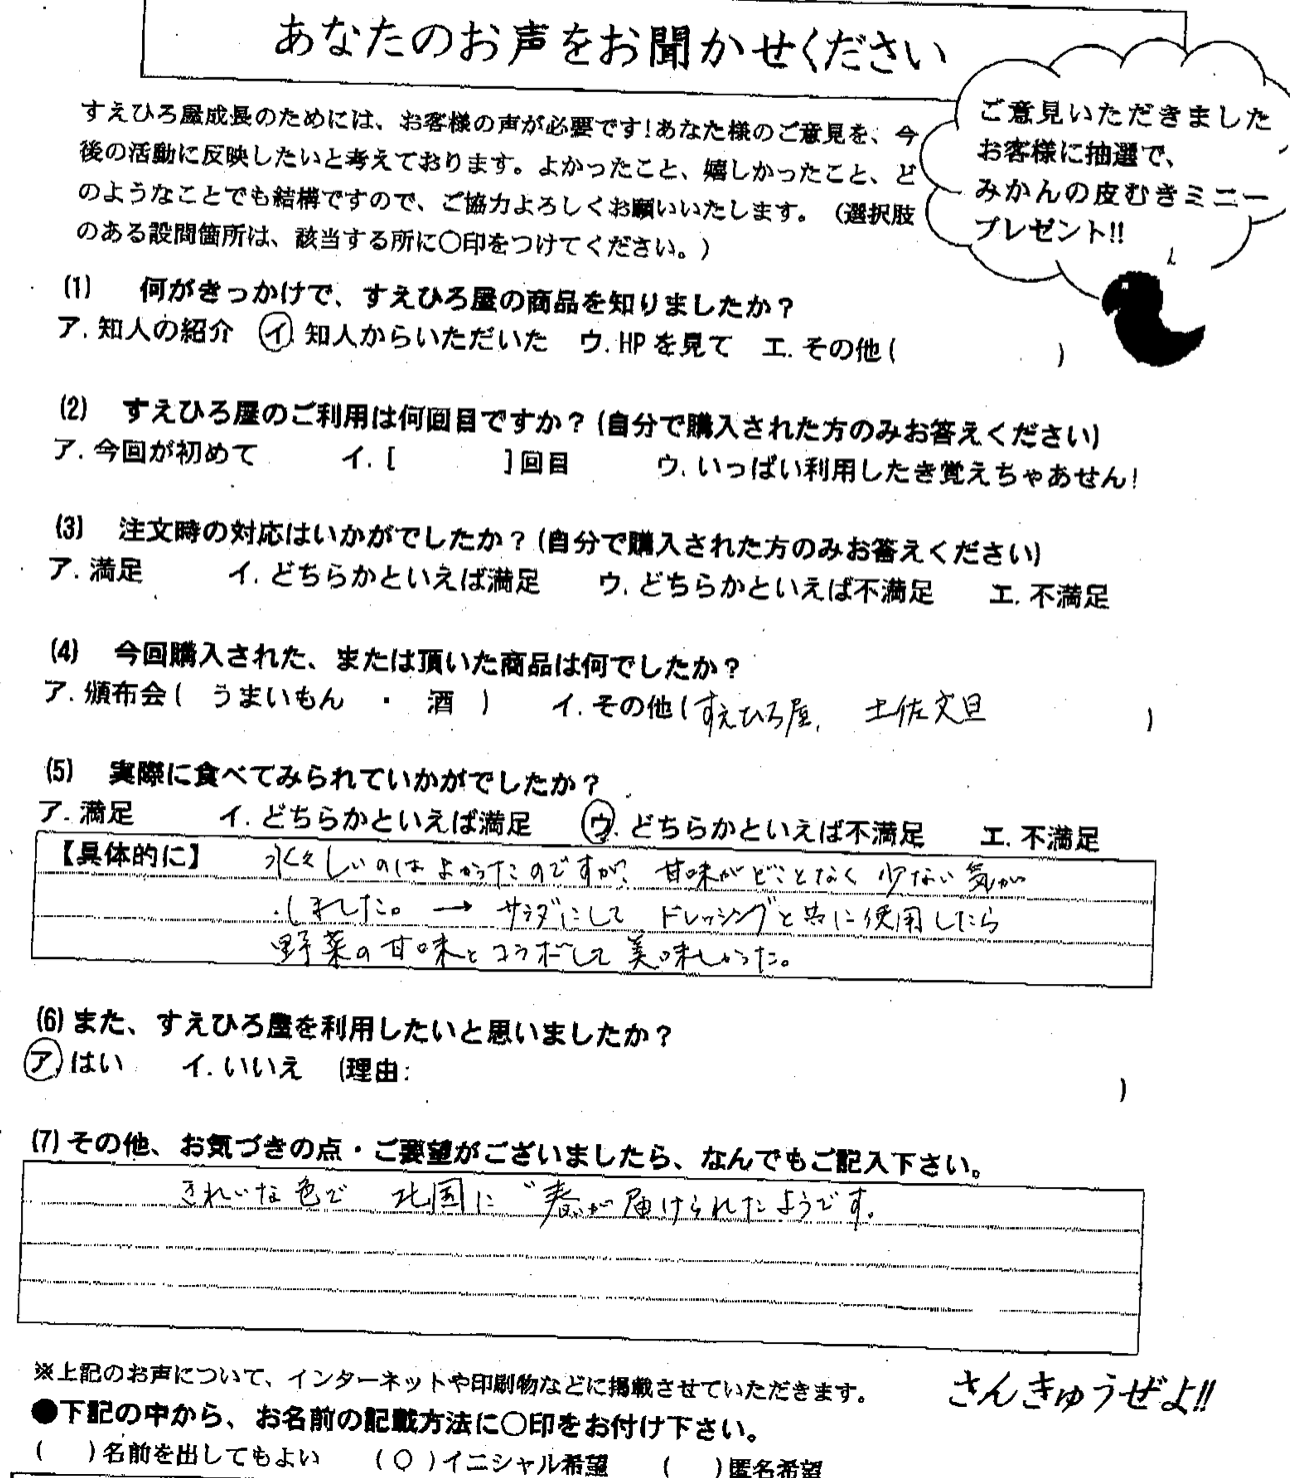 あなたのお声をお聞かせください
すえひろ屋成長のためには、お客様の声が必要です!あなた様のご意見を、今
後の活動に反映したいと考えております。よかったこと、嬉しかったこと、ど
のようなことでも結構ですので、ご協力よろしくお願いいたします。(選択肢
のある設問箇所は、該当する所に〇印をつけてください。)
ご意見いただきました
お客様に抽選で、
みかんの皮むきミニー
プレゼント!!
(1) 何がきっかけで、すえひろ屋の商品を知りましたか?
ア.知人の紹介 イ.知人からいただいた ウ.HPを見て エ.その他( )
(2) すえひろ屋のご利用は何回目ですか?(自分で購入された方のみお答えください)
ア.今回が初めて イ.[ ]回目 ウ.いっぱい利用したき覚えちゃあせん!
(3) 注文時の対応はいかがでしたか?(自分で購入された方のみお答えください)
ア.満足 イ.どちらかといえば満足 ウ.どちらかといえば不満足 エ.不満足
(4) 今回購入された、または頂いた商品は何でしたか?
ア.頒布会( うまいもん ・ 酒 ) イ.その他(すえひろ屋、 土佐文旦 )
(5) 実際に食べてみられていかがでしたか?
ア.満足 イ.どちらかといえば満足 ウ.どちらかといえば不満足 エ.不満足
【具体的に】 水々しいのはよかったのですが、甘味がどことなく少ない気が
しました。→ サラダにして ドレッシングと共に使用したら
野菜の甘味とコラボして美味しかった。
(6)また、すえひろ屋を利用したいと思いましたか?
ア はい イ.いいえ (理由: )
(7)その他、お気づきの点・ご要望がございましたら、なんでもご記入下さい。
きれいな色で 北国に“春”が届けられたようです。
※上記のお声について、インターネットや印刷物などに掲載させていただきます。
さんきゅうぜよ!!
●下記の中から、お名前の記載方法に〇印をお付け下さい。
( )名前を出してもよい (〇)イニシャル希望 ( )匿名希望